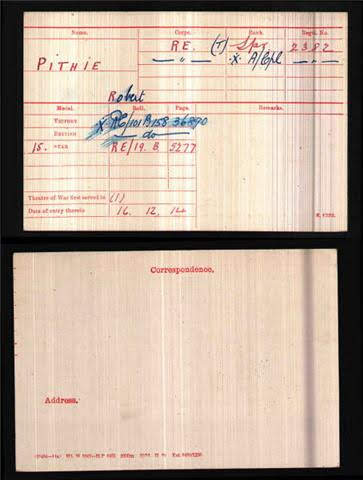 Name. Corps. Rank. Regtl. No.
R.E. (T) Spr 2382
PITHIE — " — X A/Cpl — " —
Robert
Medal. Roll. Page. Remarks.
VICTORY X RE/101 B158 36890
BRITISH — do —
15. STAR RE/19.B. 5277
Theatre of War first served in (1)
Date of entry therein 16. 12. 14
Correspondence.
Address.